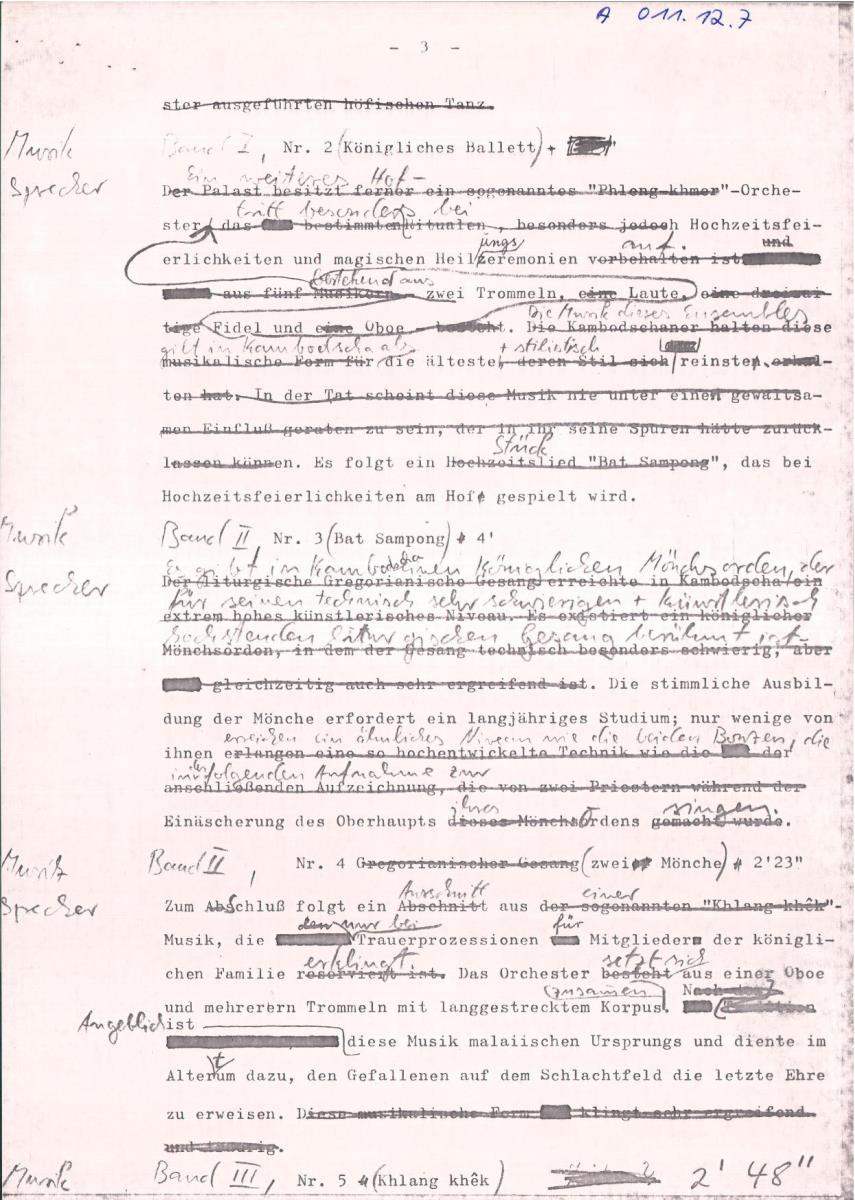 A 011.12.7
- 3 -
ster ausgeführten höfischen Tanz.
Musik Band I, Nr. 2 (Königliches Ballett) +
Ein weiteres Hof-
Sprecher Der Palast besitzt ferner ein sogenanntes "Phleng-khmer"-Orche-
tritt besonders bei
ster, das bestimmten Ritualen, besonders jedoch Hochzeitsfei-
ungs auf. und
erlichkeiten und magischen Heilzeremonien vorbehalten ist
bestehend aus
aus fünf Musikern zwei Trommeln, eine Laute, eine dreisai-
Die Musik dieses Ensembles
tige Fidel und eine Oboe besteht. Die Kambodschaner halten diese
gilt in Kambodscha als + stilistisch
musikalische Form für die älteste, deren Stil sich reinsten erhal-
ten hat. In der Tat scheint diese Musik nie unter einem gewaltsa-
men Einfluß geraten zu sein, der in ihr seine Spuren hätte zurück-
Stück
lassen können. Es folgt ein Hochzeitslied "Bat Sampong", das bei
Hochzeitsfeierlichkeiten am Hof gespielt wird.
Musik Band II, Nr. 3 (Bat Sampong) 4'
Es gibt in Kambodscha einen Königlichen Mönchsorden, der
Sprecher Der liturgische Gregorianische Gesang erreichte in Kambodscha ein
für seinen technisch sehr schwierigen + künstlerisch
extrem hohes künstlerisches Niveau. Es existiert ein königlicher
hochstehenden liturgischen Gesang berühmt ist.
Mönchsorden, in dem der Gesang technisch besonders schwierig, aber
gleichzeitig auch sehr ergreifend ist. Die stimmliche Ausbil-
dung der Mönche erfordert ein langjähriges Studium; nur wenige von
erreichen ein ähnliches Niveau wie die beiden Bonzen, die
ihnen erlangen eine so hochentwickelte Technik wie die der
in der folgenden Aufnahme zur
anschließenden Aufzeichnung, die von zwei Priestern während der
ihres singen.
Einäscherung des Oberhaupts dieses Mönchsordens gemacht wurde.
Musik Band II, Nr. 4 Gregorianischer Gesang (zwei Mönche) 2'23"
Ausschnitt einer
Sprecher Zum Abschluß folgt ein Abschnitt aus der sogenannten "Khlang-khêk"-
den nur bei für
Musik, die Trauerprozessionen Mitglieder der königli-
erklingt. setzt sich
chen Familie reserviert ist. Das Orchester besteht aus einer Oboe
zusammen Nach der
und mehreren Trommeln mit langgestrecktem Korpus. Tradition
Angeblich ist
diese Musik malaiischen Ursprungs und diente im
Altertum dazu, den Gefallenen auf dem Schlachtfeld die letzte Ehre
zu erweisen. Diese musikalische Form klingt sehr ergreifend
und traurig.
Musik Band III, Nr. 5 (Khlang khêk) 2' 48"